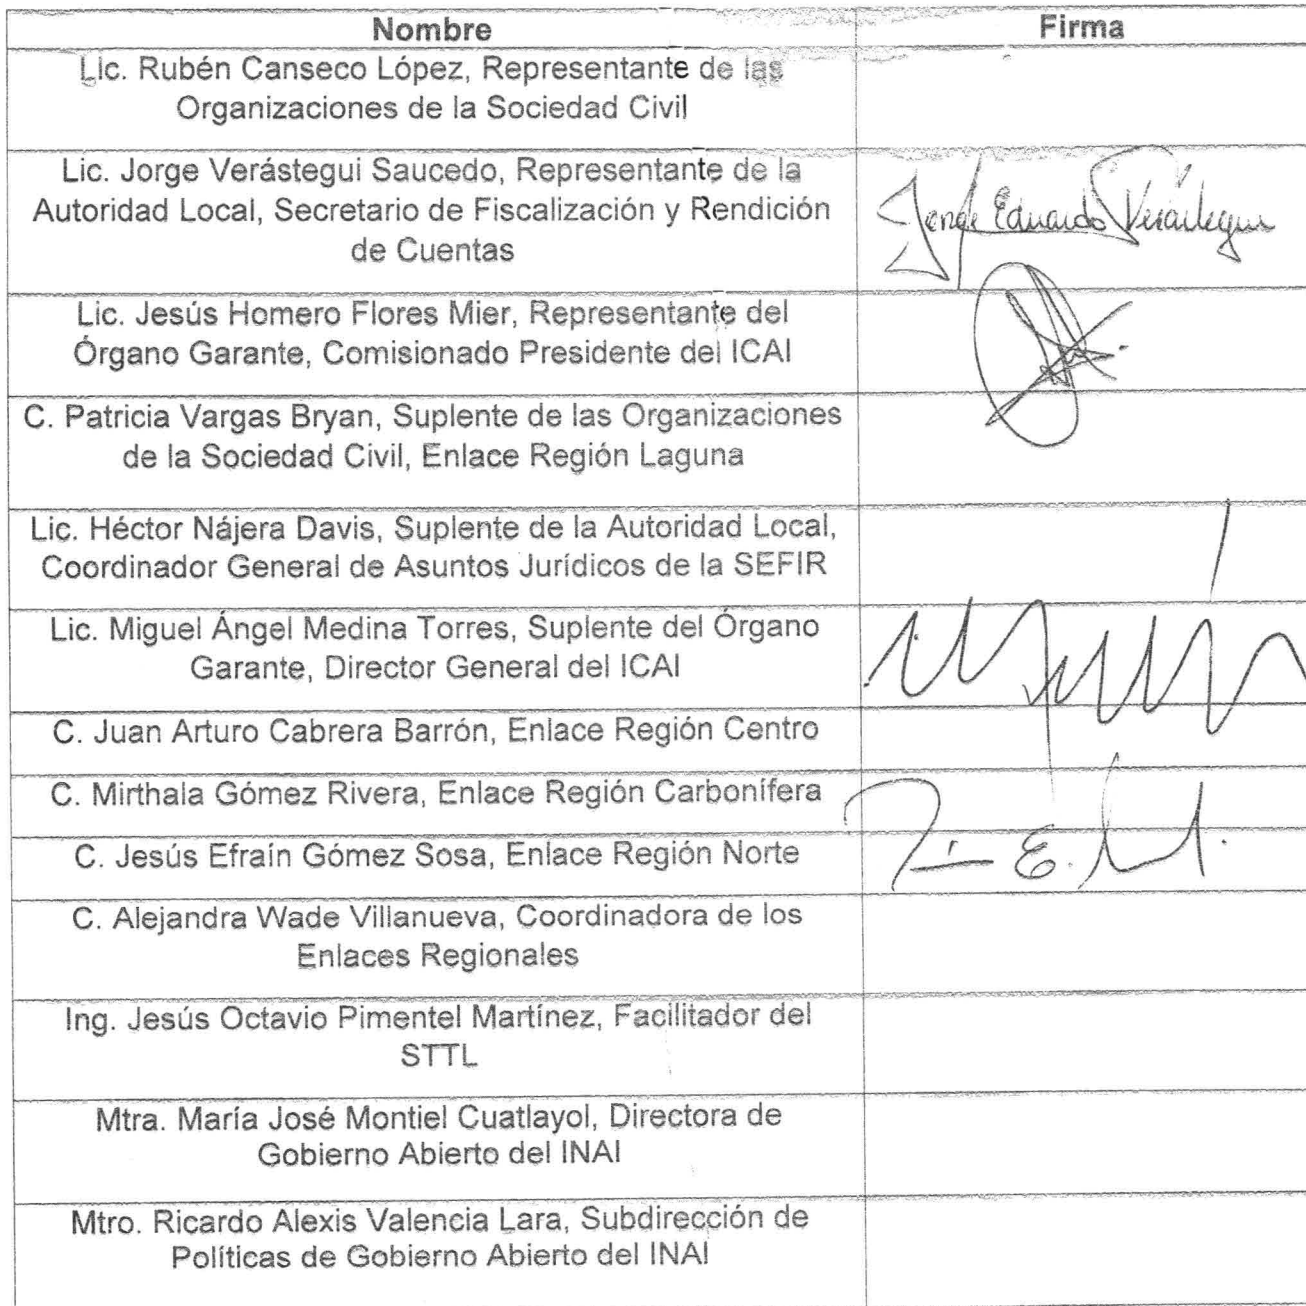 Nombre
Firma
Lic. Rubén Canseco López, Representante de las
Organizaciones de la Sociedad Civil
Lic. Jorge Verástegui Saucedo, Representante de la
Autoridad Local, Secretario de Fiscalización y Rendición
de Cuentas
Jorge Eduardo Verástegui
Lic. Jesús Homero Flores Mier, Representante del
Órgano Garante, Comisionado Presidente del ICAI
C. Patricia Vargas Bryan, Suplente de las Organizaciones
de la Sociedad Civil, Enlace Región Laguna
Lic. Héctor Nájera Davis, Suplente de la Autoridad Local,
Coordinador General de Asuntos Jurídicos de la SEFIR
Lic. Miguel Ángel Medina Torres, Suplente del Órgano
Garante, Director General del ICAI
C. Juan Arturo Cabrera Barrón, Enlace Región Centro
C. Mirthala Gómez Rivera, Enlace Región Carbonífera
C. Jesús Efraín Gómez Sosa, Enlace Región Norte
C. Alejandra Wade Villanueva, Coordinadora de los
Enlaces Regionales
Ing. Jesús Octavio Pimentel Martínez, Facilitador del
STTL
Mtra. María José Montiel Cuatlayol, Directora de
Gobierno Abierto del INAI
Mtro. Ricardo Alexis Valencia Lara, Subdirección de
Políticas de Gobierno Abierto del INAI